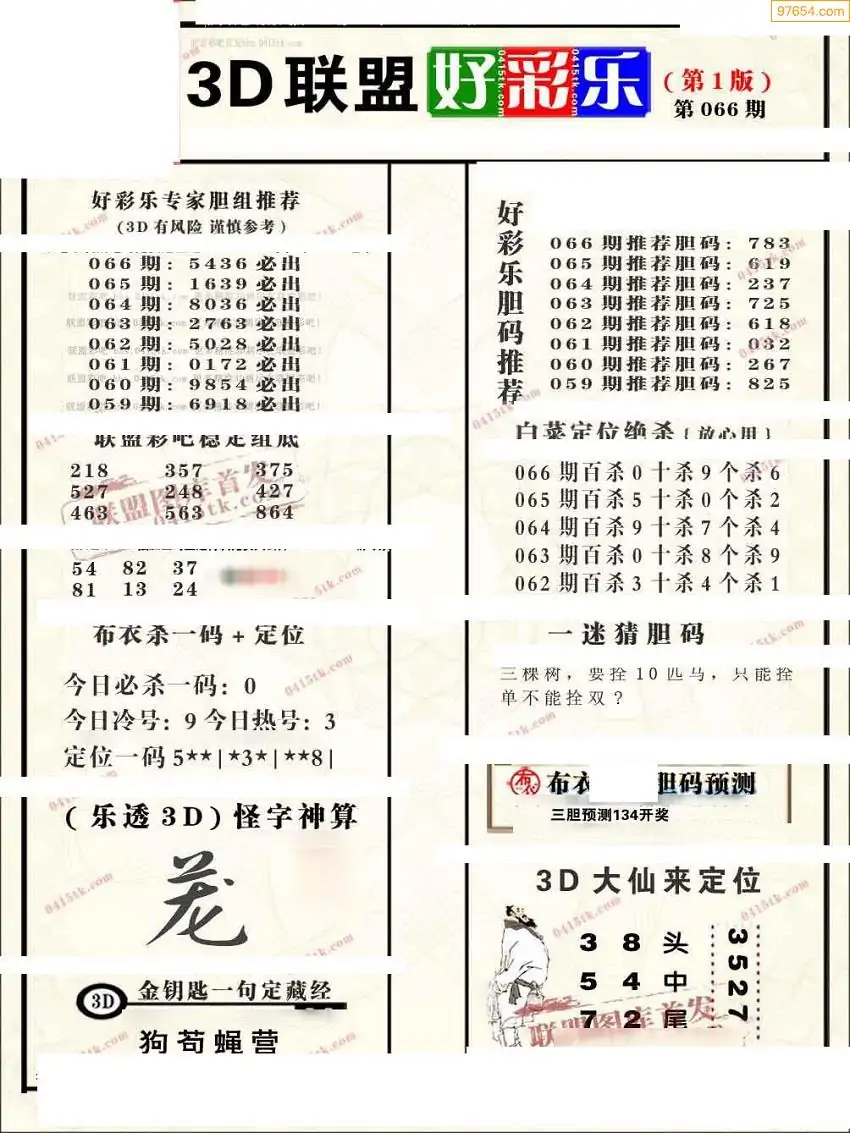 97654.com
3D联盟好彩乐
(第1版)
第066期
好彩乐专家胆组推荐
(3D有风险 谨慎参考)
066期:5436必出
065期:1639必出
064期:8036必出
063期:2763必出
062期:5028必出
061期:0172必出
060期:9854必出
059期:6918必出
联盟彩吧稳定组底
218 357 375
527 248 427
463 563 864
54 82 37
81 13 24
布衣杀一码+定位
今日必杀一码:0
今日冷号:9今日热号:3
定位一码5**|*3*|**8|
(乐透3D)怪字神算
3D 金钥匙一句定藏经
狗苟蝇营
好彩乐胆码推荐
066期推荐胆码:783
065期推荐胆码:619
064期推荐胆码:237
063期推荐胆码:725
062期推荐胆码:618
061期推荐胆码:032
060期推荐胆码:267
059期推荐胆码:825
白菜定位绝杀{放心用}
066期百杀0十杀9个杀6
065期百杀5十杀0个杀2
064期百杀9十杀7个杀4
063期百杀0十杀8个杀9
062期百杀3十杀4个杀1
一迷猜胆码
三棵树,要拴10匹马,只能拴
单不能拴双?
布衣 胆码预测
三胆预测134开奖
3D大仙来定位
3 8 头
5 4 中
7 2 尾
3527
联盟图库首发
0415tk.com